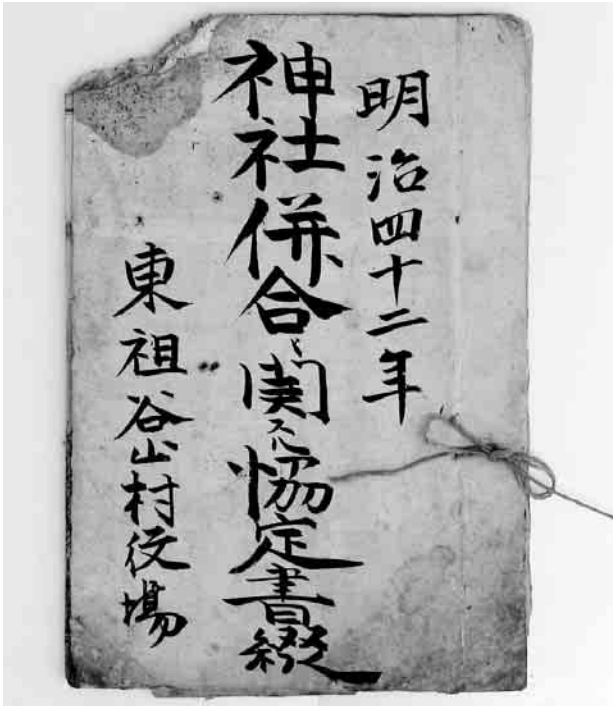 明治四十二年
神社併合ニ関スル協定書綴
東祖谷山村役場